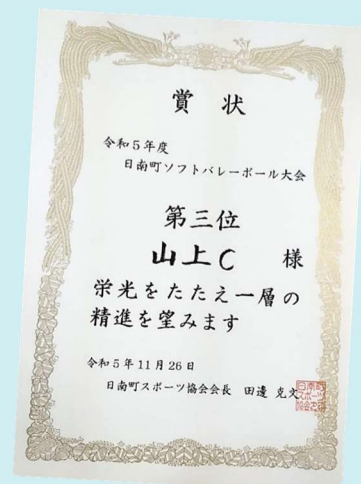 賞状
令和5年度
日南町ソフトバレーボール大会
第三位
山上C 様
栄光をたたえ一層の
精進を望みます
令和5年11月26日
日南町スポーツ協会会長 田邊 克文
日南町
スポーツ
協会之印